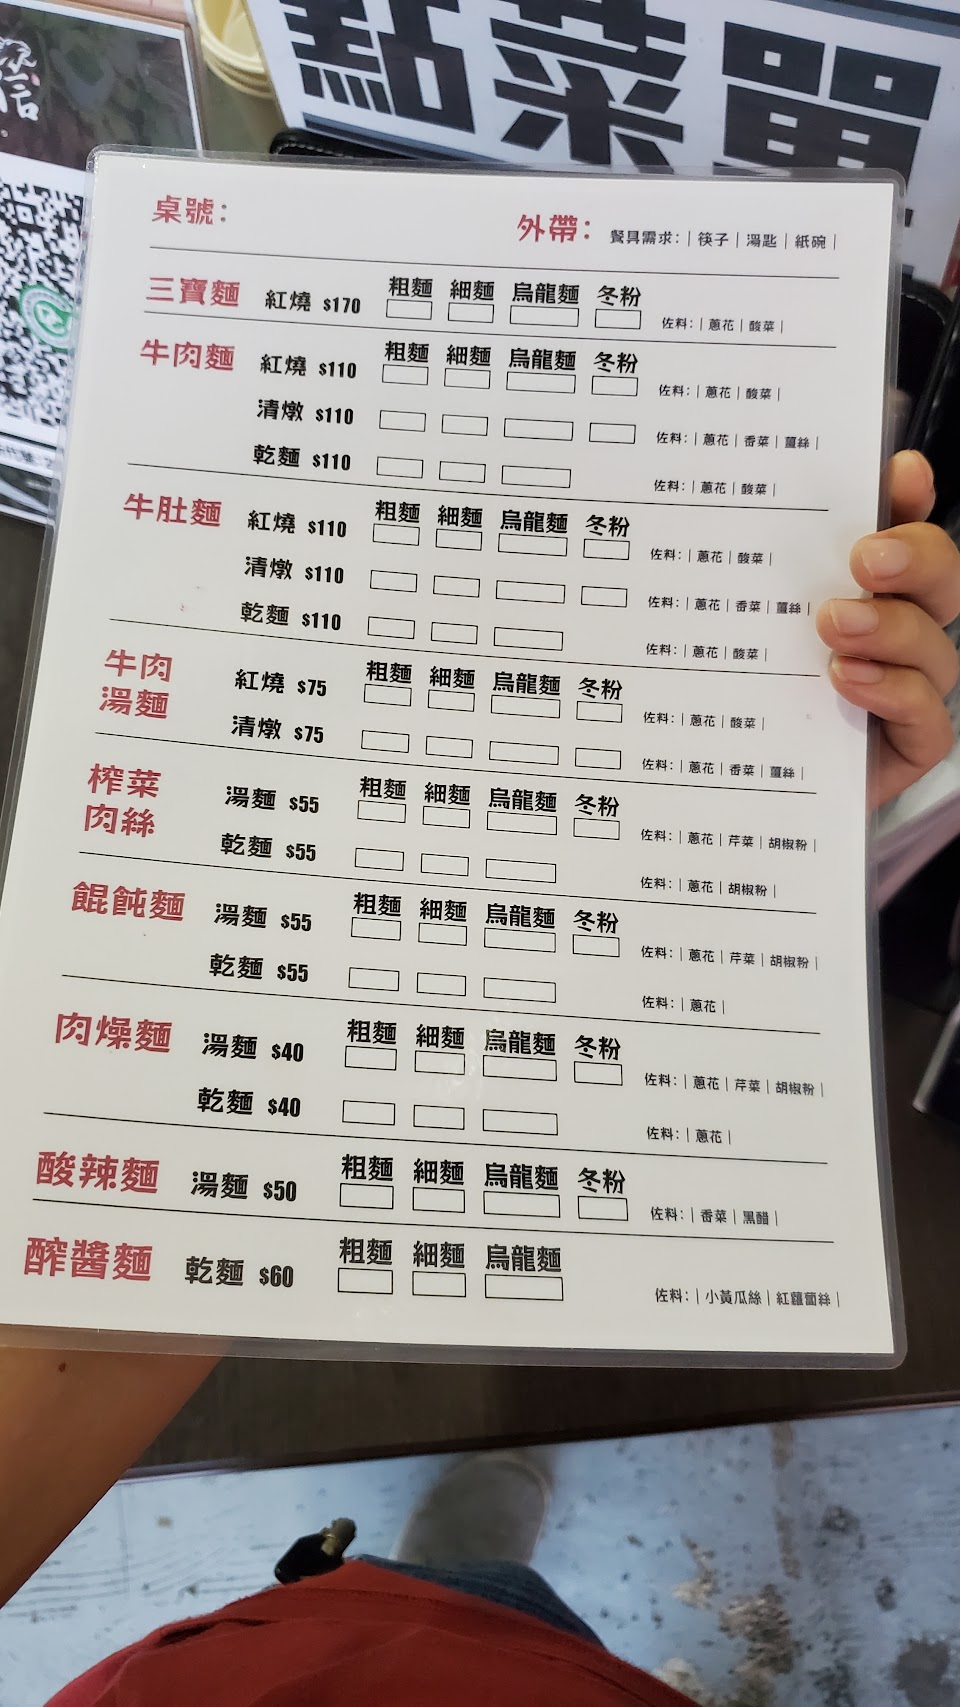 點菜單
信
桌號： 外帶： 餐具需求：｜筷子｜湯匙｜紙碗｜
三寶麵 紅燒 $170 粗麵 細麵 烏龍麵 冬粉 佐料：｜蔥花｜酸菜｜
牛肉麵 紅燒 $110 粗麵 細麵 烏龍麵 冬粉 佐料：｜蔥花｜酸菜｜
清燉 $110 佐料：｜蔥花｜香菜｜薑絲｜
乾麵 $110 佐料：｜蔥花｜酸菜｜
牛肚麵 紅燒 $110 粗麵 細麵 烏龍麵 冬粉 佐料：｜蔥花｜酸菜｜
清燉 $110 佐料：｜蔥花｜香菜｜薑絲｜
乾麵 $110 佐料：｜蔥花｜酸菜｜
牛肉
湯麵 紅燒 $75 粗麵 細麵 烏龍麵 冬粉 佐料：｜蔥花｜酸菜｜
清燉 $75 佐料：｜蔥花｜香菜｜薑絲｜
榨菜
肉絲 湯麵 $55 粗麵 細麵 烏龍麵 冬粉 佐料：｜蔥花｜芹菜｜胡椒粉｜
乾麵 $55 佐料：｜蔥花｜胡椒粉｜
餛飩麵 湯麵 $55 粗麵 細麵 烏龍麵 冬粉 佐料：｜蔥花｜芹菜｜胡椒粉｜
乾麵 $55 佐料：｜蔥花｜
肉燥麵 湯麵 $40 粗麵 細麵 烏龍麵 冬粉 佐料：｜蔥花｜芹菜｜胡椒粉｜
乾麵 $40 佐料：｜蔥花｜
酸辣麵 湯麵 $50 粗麵 細麵 烏龍麵 冬粉 佐料：｜香菜｜黑醋｜
醡醬麵 乾麵 $60 粗麵 細麵 烏龍麵 佐料：｜小黃瓜絲｜紅蘿蔔絲｜